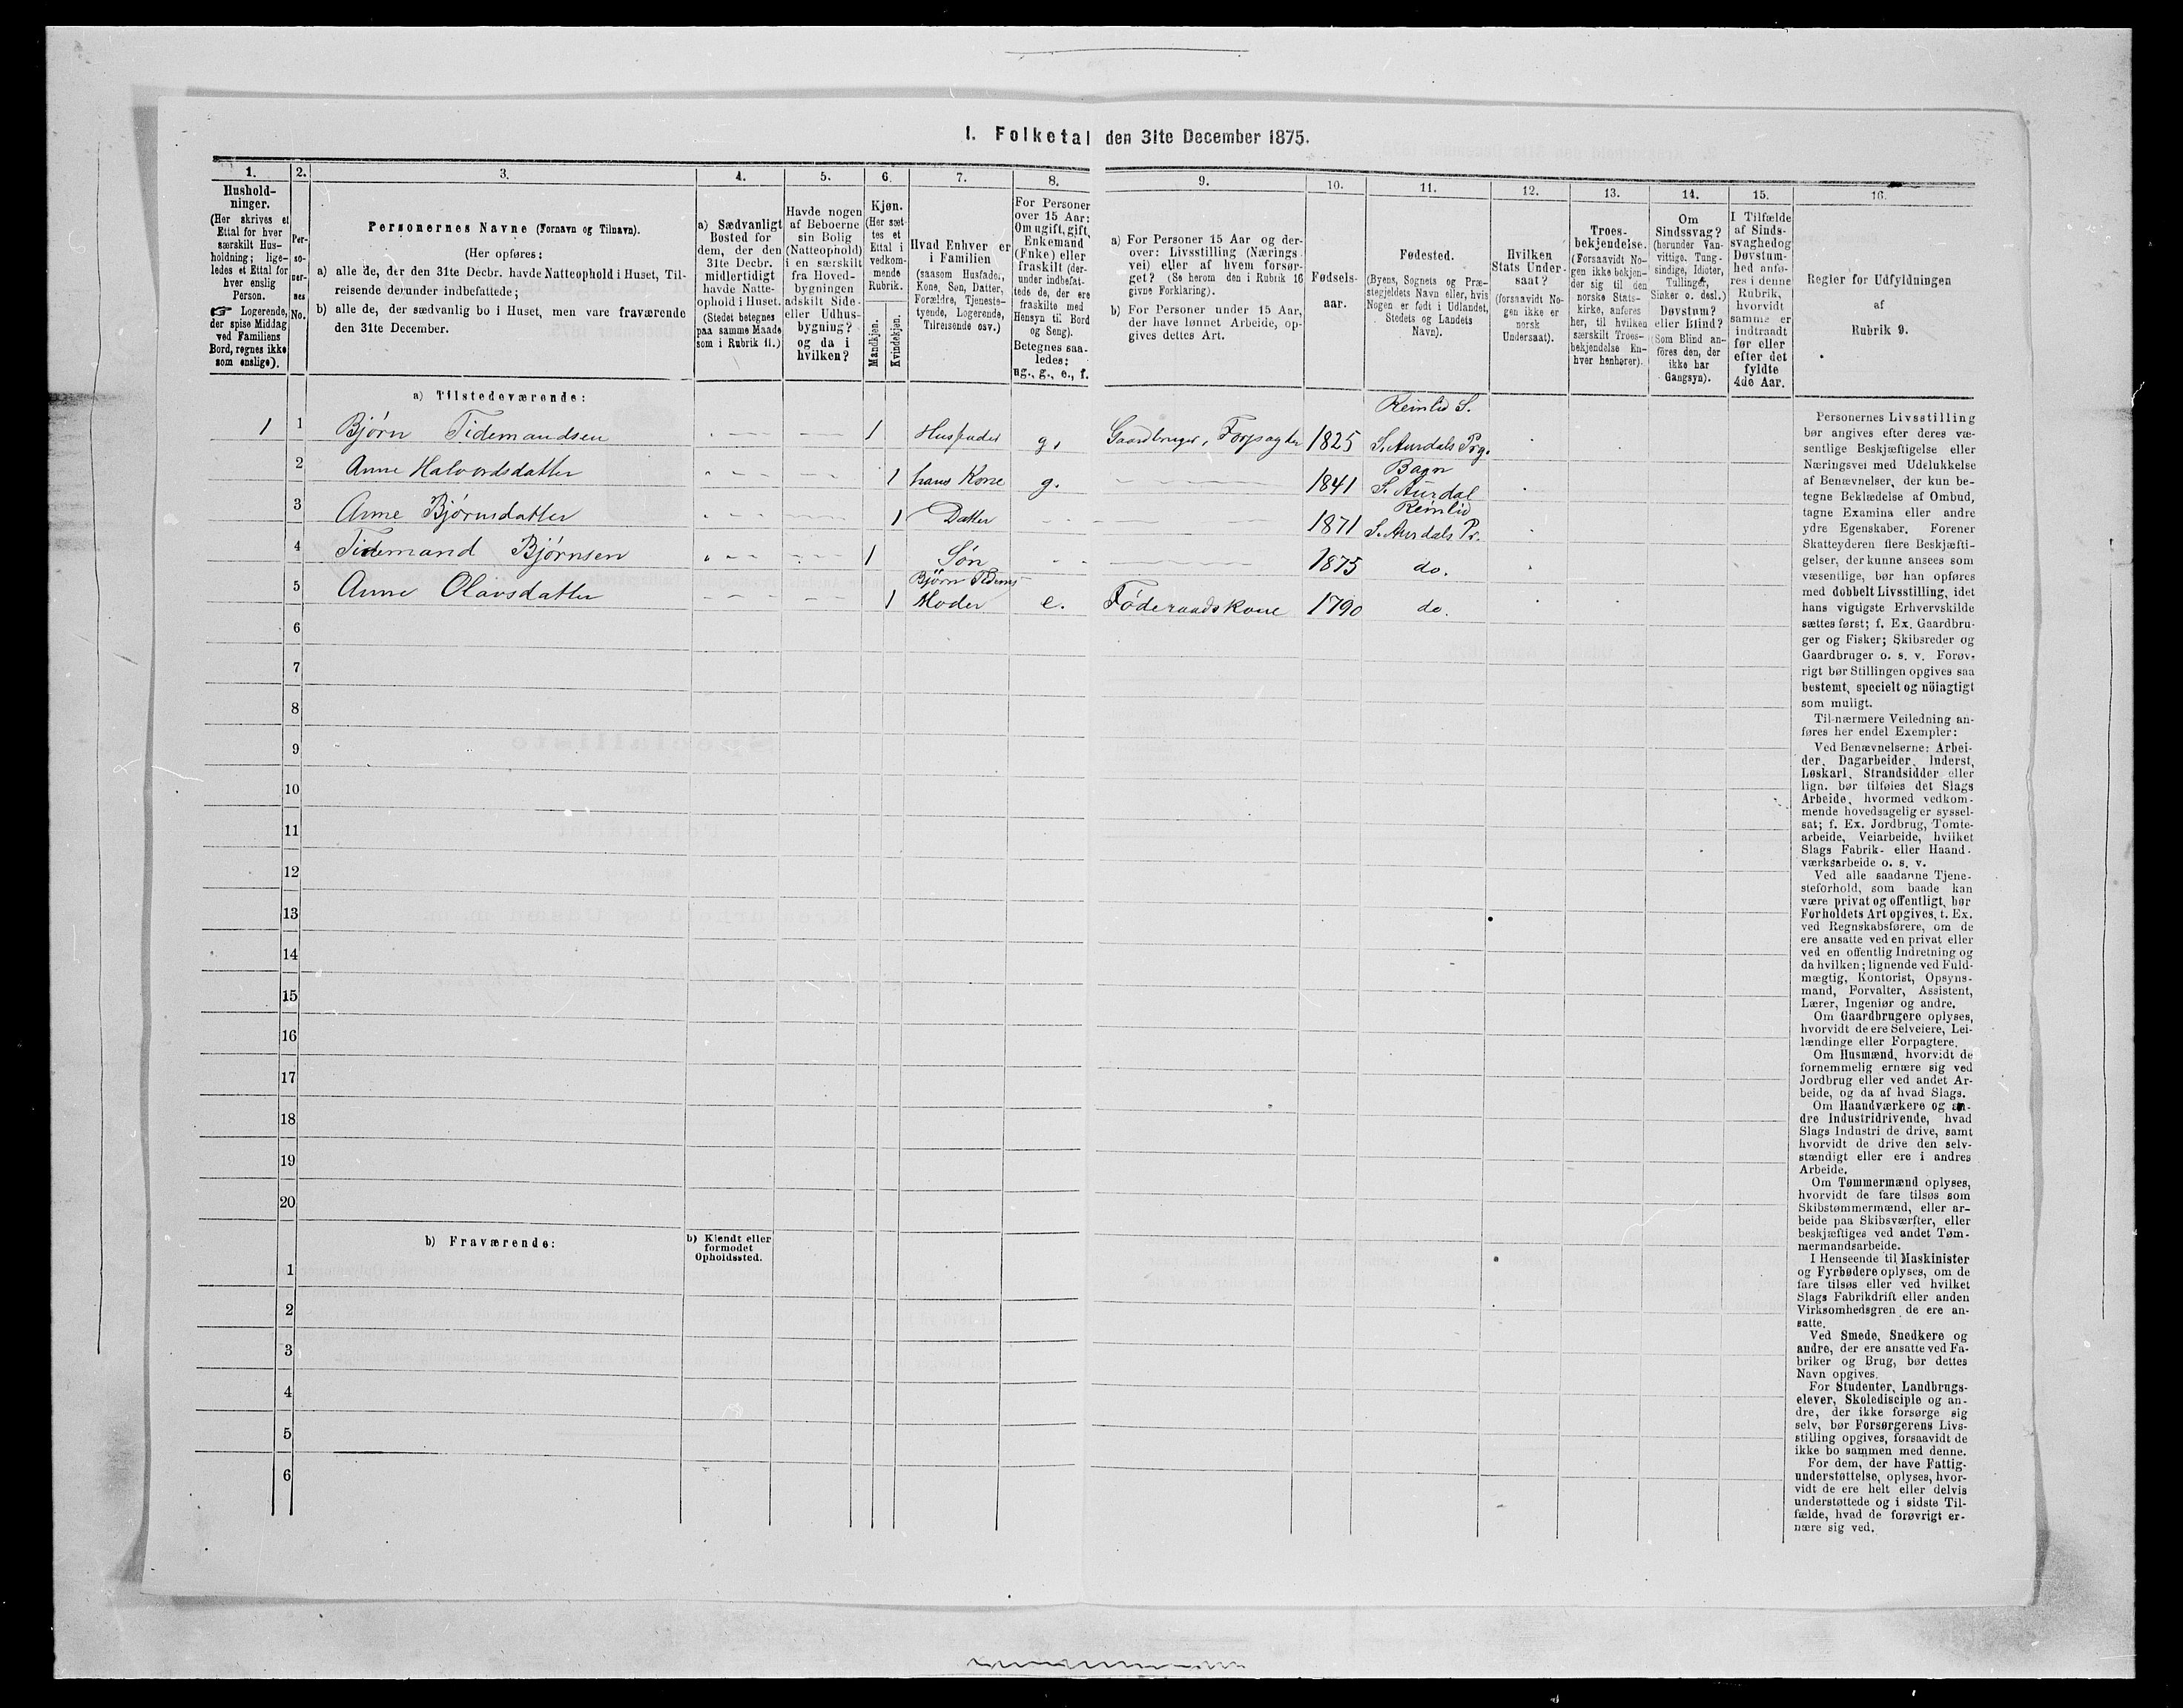 I. Folketal den 31te December 1875.
1.
Hushold-
ninger.
(Her skrives et
Ettal for hver
særskilt Hus-
holdning; lige-
ledes et Ettal for
hver enslig
Person.
☞ Logerende,
der spise Middag
ved Familiens
Bord, regnes ikke
som enslige).
2.
Per-
so-
ner-
nes
No.
3.
Personernes Navne (Fornavn og Tilnavn).
(Her opføres:
a) alle de, der den 31te Decbr. havde Natteophold i Huset, Til-
reisende derunder indbefattede;
b) alle de, der sædvanlig bo i Huset, men vare fraværende
den 31te December.
4.
a) Sædvanligt
Bosted for
dem, der den
31te Decbr.
midlertidigt
havde Natte-
ophold i Huset.
(Stedet betegnes
paa samme Maade
som i Rubrik 11.)
5.
Havde nogen
af Beboerne
sin Bolig
(Natteophold)
i en særskilt
fra Hoved-
bygningen
adskilt Side-
eller Udhus-
bygning?
og da i
hvilken?
6.
Kjøn.
(Her sæt-
tes et
Ettal i
vedkom-
mende
Rubrik.
Mandkjøn.
Kvindekjøn.
7.
Hvad Enhver er
i Familien
(saasom Husfader,
Kone, Søn, Datter,
Forældre, Tjeneste-
tyende, Logerende,
Tilreisende osv.)
8.
For Personer
over 15 Aar:
Om ugift, gift,
Enkemand
(Enke) eller
fraskilt (der-
under indbefat-
tede de, der ere
fraskilte med
Hensyn til Bord
og Seng).
Betegnes saa-
ledes:
ug., g., e., f.
9.
a) For Personer 15 Aar og der-
over: Livsstilling (Nærings-
vei) eller af hvem forsør-
get? (Se herom den i Rubrik 16
givne Forklaring).
b) For Personer under 15 Aar,
der have lønnet Arbeide, op-
gives dettes Art.
10.
Fødsels-
aar.
11.
Fødested.
(Byens, Sognets og Præ-
stegjeldets Navn eller, hvis
Nogen er født i Udlandet,
Stedets og Landets
Navn).
12.
Hvilken
Stats Under-
saat?
(forsaavidt No-
gen ikke er
norsk
Undersaat).
13.
Troes-
bekjendelse.
(Forsaavidt No-
gen ikke bekjen-
der sig til den
norske Stats-
kirke, anføres
her, til hvilken
særskilt Troes-
bekjendelse En-
hver henhører).
14.
Om
Sindssvag?
(herunder Van-
vittige, Tung-
sindige, Idioter,
Tullinger,
Sinker o. desl.)
Døvstum?
eller Blind?
(Som Blind an-
føres den, der
ikke har
Gangsyn).
15.
I Tilfælde
af Sinds-
svaghed og
Døvstum-
hed anfø-
res i denne
Rubrik,
hvorvidt
samme er
indtraadt
før eller
efter det
fyldte
4de Aar.
16.
Regler for Udfyldningen
af
Rubrik 9.
a) Tilstedeværende:
Reinlid S.
1 1 Bjørn Tidemandsen 1 Husfader g. Gaardbruger, Forpagter 1825 S. Aurdals Prg.
Bagn
2 Anne Halvordsdatter 1 hans Kone g. 1841 S. Aurdal
Reinlid
3 Anne Bjørnsdatter 1 Datter 1871 S. Aurdals Pr.
4 Tidemand Bjørnsen 1 Søn 1875 do.
Bjørn Tidems
5 Anne Olavsdatter 1 Moder e. Föderaadskone 1790 do.
6
7
8
9
10
11
12
13
14
15
16
17
18
19
20
b) Fraværende:
b) Kjendt eller
formodet
Opholdssted.
1
2
3
4
5
6
Personernes Livsstilling
bør angives efter deres væ-
sentlige Beskjæftigelse eller
Næringsvei med Udelukkelse
af Benævnelser, der kun be-
tegne Beklædelse af Ombud,
tagne Examina eller andre
ydre Egenskaber. Forener
Skatteyderen flere Beskjæfti-
gelser, der kunne ansees som
væsentlige, bør han opføres
med dobbelt Livsstilling, idet
hans vigtigste Erhvervskilde
sættes først; f. Ex. Gaardbru-
ger og Fisker; Skibsreder og
Gaardbruger o. s. v. Forøv-
rigt bør Stillingen opgives saa
bestemt, specielt og nöiagtigt
som muligt.
Til nærmere Veiledning an-
føres her endel Exempler:
Ved Benævnelserne: Arbei-
der, Dagarbeider, Inderst,
Løskarl, Strandsidder eller
lign. bør tilføies det Slags
Arbeide, hvormed vedkom-
mende hovedsagelig er syssel-
sat; f. Ex. Jordbrug, Tomte-
arbeide, Veiarbeide, hvilket
Slags Fabrik- eller Haand-
værksarbeide o. s. v.
Ved alle saadanne Tjene-
steforhold, som baade kan
være privat og offentligt, bør
Forholdets Art opgives, t. Ex.
ved Regnskabsførere, om de
ere ansatte ved en privat eller
ved en offentlig Indretning og
da hvilken; lignende ved Fuld-
mægtig, Kontorist, Opsyns-
mand, Forvalter, Assistent,
Lærer, Ingeniør og andre.
Om Gaardbrugere oplyses,
hvorvidt de ere Selveiere, Lei-
lændinge eller Forpagtere.
Om Husmænd, hvorvidt de
fornemmelig ernære sig ved
Jordbrug eller ved andet Ar-
beide, og da af hvad Slags.
Om Haandværkere og an-
dre Industridrivende, hvad
Slags Industri de drive, samt
hvorvidt de drive den selv-
stændigt eller ere i andres
Arbeide.
Om Tømmermænd oplyses,
hvorvidt de fare tilsøs som
Skibstømmermænd, eller ar-
beide paa Skibsværfter, eller
beskjæftiges ved andet Tøm-
mermandsarbeide.
I Henseende til Maskinister
og Fyrbødere oplyses, om de
fare tilsøs eller ved hvilket
Slags Fabrikdrift eller anden
Virksomhedsgren de ere an-
satte.
Ved Smede, Snedkere og
andre, der ere ansatte ved Fa-
briker og Brug, bør dettes
Navn opgives.
For Studenter, Landbrugs-
elever, Skoledisciple og an-
dre, der ikke forsørge sig
selv, bør Forsørgerens Livs-
stilling opgives, forsaavidt de
ikke bo sammen med denne.
For dem, der have Fattig-
understøttelse, oplyses, hvor-
vidt de ere helt eller delvis
understøttede og i sidste Til-
fælde, hvad de forøvrigt er-
nære sig ved.